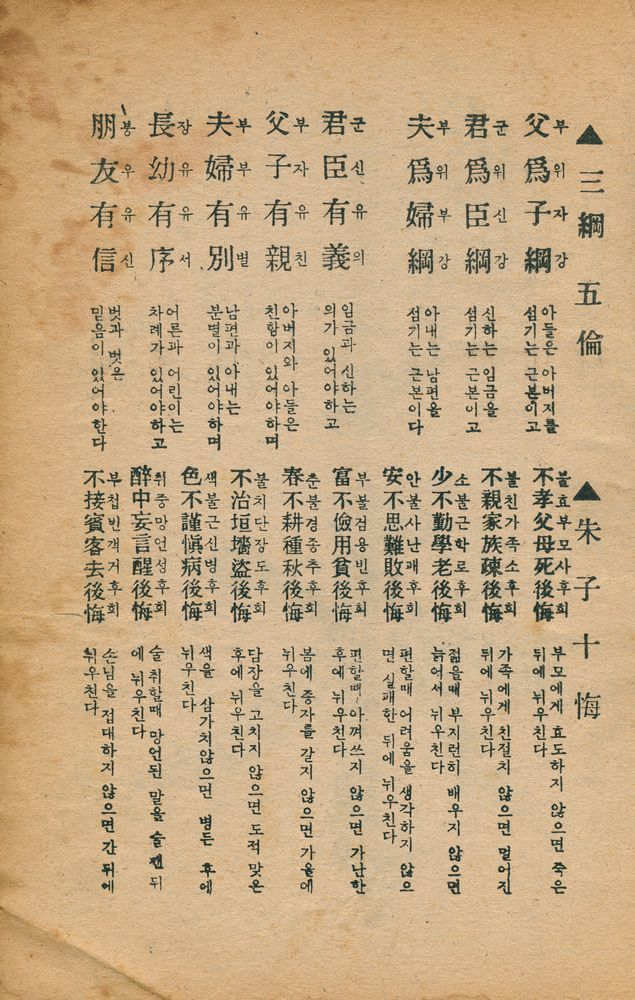 ▲三綱五倫
父爲子綱
부위자강
아들은 아버지를
섬기는 근본이고
君爲臣綱
군위신강
신하는 임금을
섬기는 근본이고
夫爲婦綱
부위부강
아내는 남편을
섬기는 근본이다
君臣有義
군신유의
임금과 신하는
의가 있어야하고
父子有親
부자유친
아버지와 아들은
친함이 있어야하며
夫婦有別
부부유별
남편과 아내는
분별이 있어야하며
長幼有序
장유유서
어른과 어린이는
차례가 있어야하고
朋友有信
붕우유신
벗과 벗은
믿음이 있어야한다
▲朱子十悔
不孝父母死後悔
불효부모사후회
부모에게 효도하지 않으면 죽은
뒤에 뉘우친다
不親家族疎後悔
불친가족소후회
가족에게 친절치 않으면 멀어진
뒤에 뉘우친다
少不勤學老後悔
소불근학로후회
젊을때 부지런히 배우지 않으면
늙어서 뉘우친다
安不思難敗後悔
안불사난패후회
편할때 어려움을 생각하지 않으
면 실패한 뒤에 뉘우친다
富不儉用貧後悔
부불검용빈후회
편할때 아껴쓰지 않으면 가난한
후에 뉘우친다
春不耕種秋後悔
춘불경종추후회
봄에 종자를 갈지 않으면 가을에
뉘우친다
不治垣墻盜後悔
불치단장도후회
담장을 고치지 않으면 도적 맞은
후에 뉘우친다
色不謹愼病後悔
색불근신병후회
색을 삼가치않으면 병든 후에
뉘우친다
醉中妄言醒後悔
취중망언성후회
술 취할때 망언된 말을 술 깬 뒤
에 뉘우친다
不接賓客去後悔
부접빈객거후회
손님을 접대하지 않으면 간 뒤에
뉘우친다